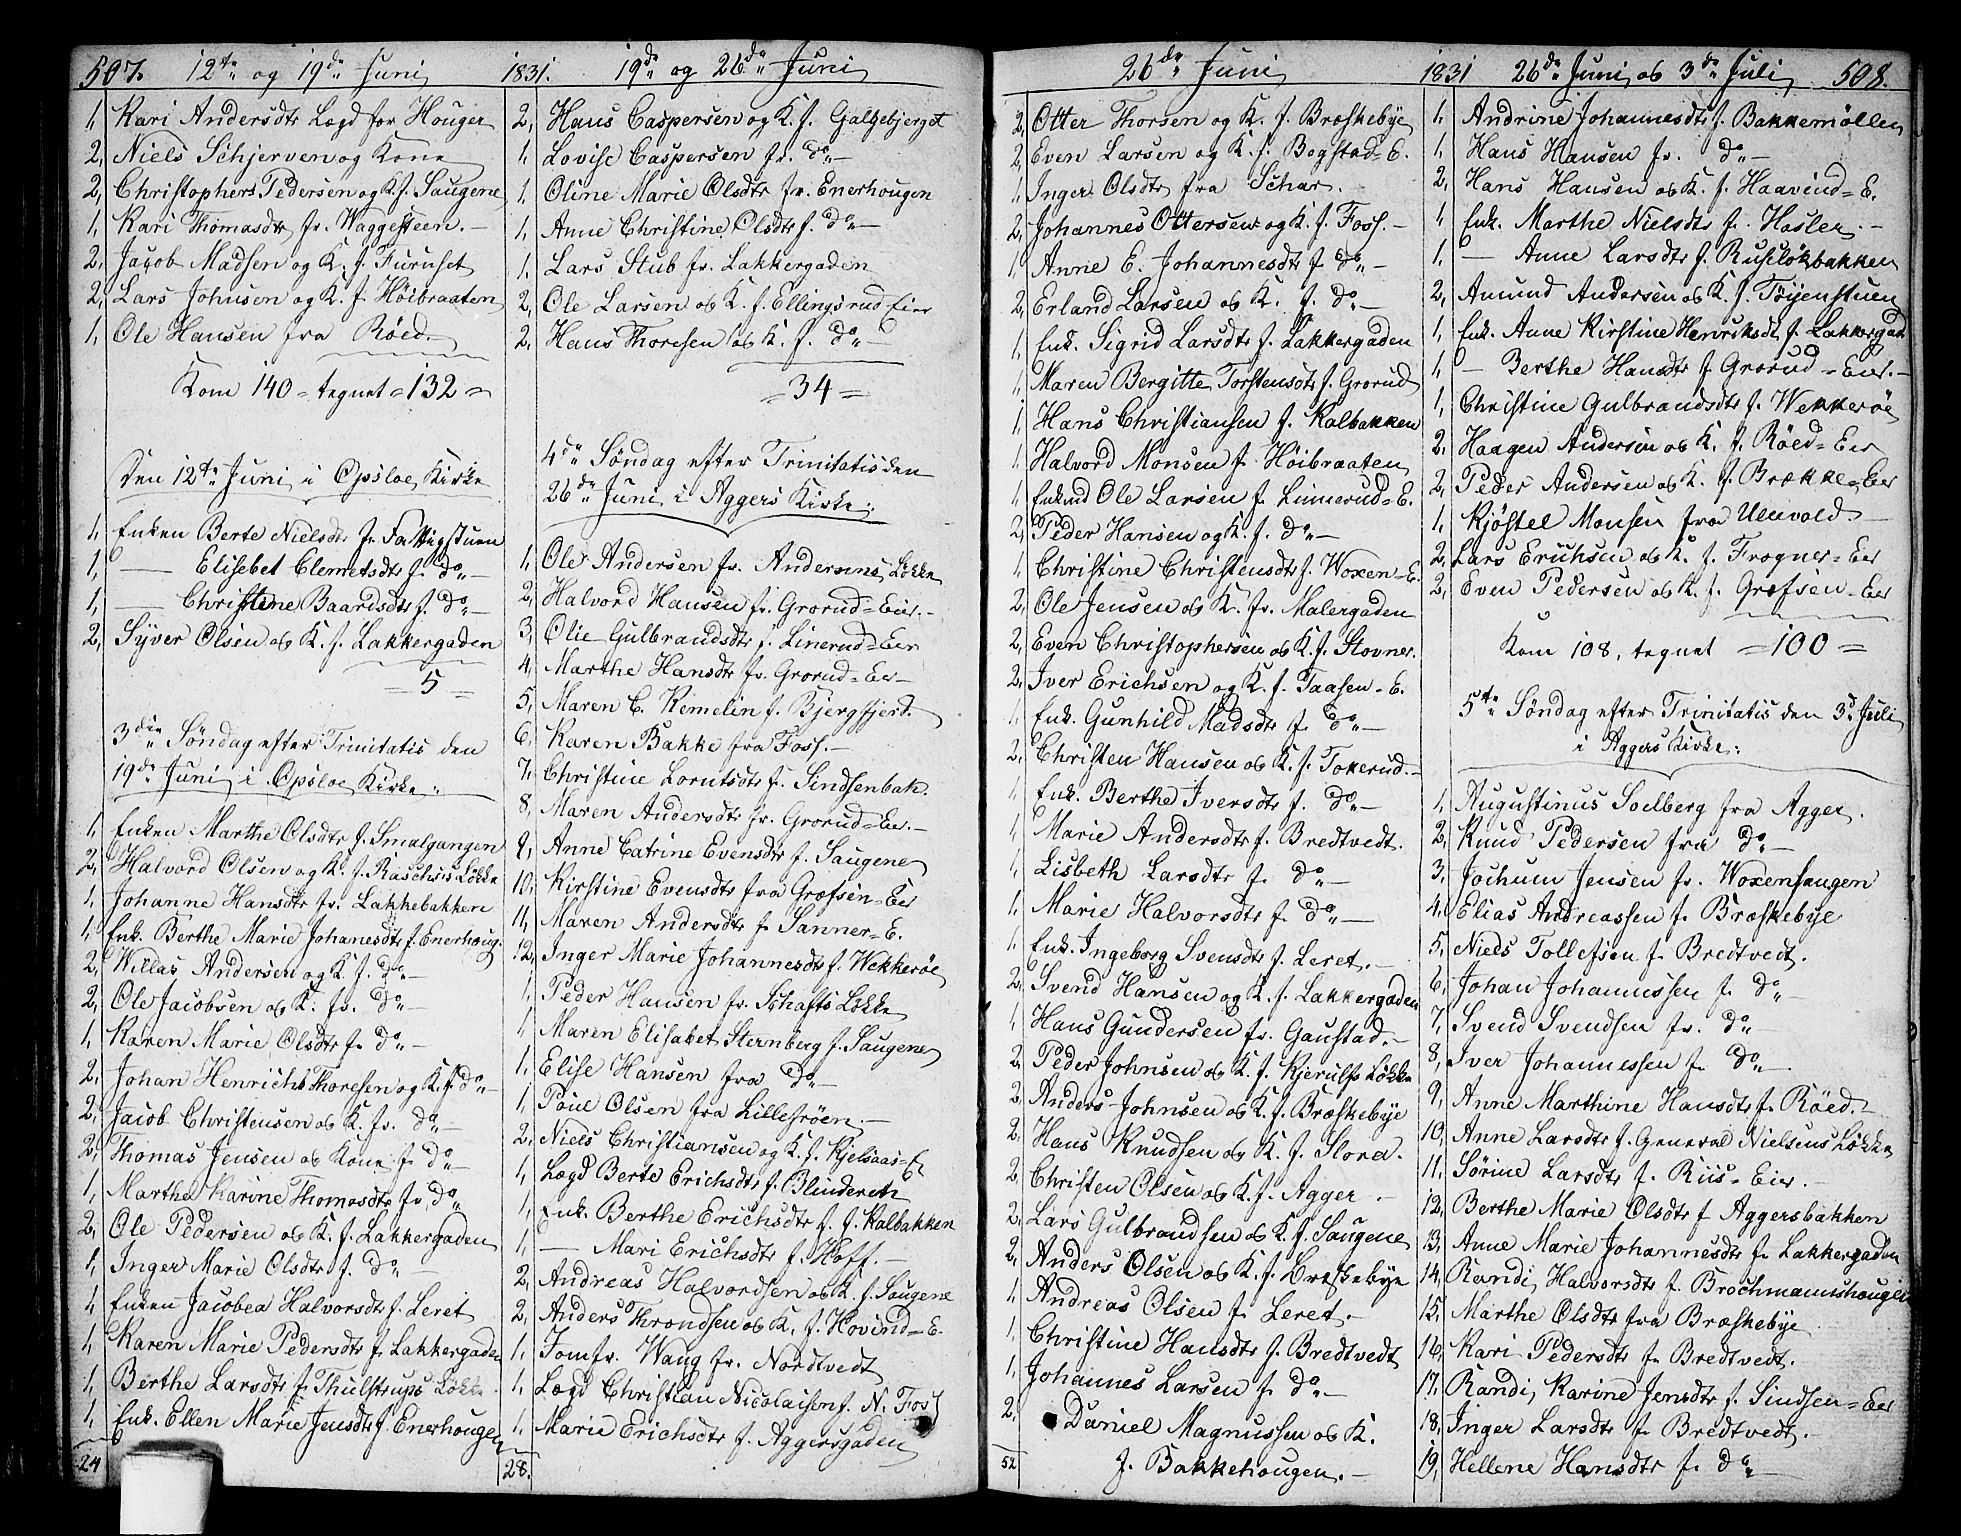 507. 12te og 19de Juni 1831. 19de og 26de Juni
1, Kari Andersdtr Lægd for Houger
2, Niels Schjerven og Kone
2, Christophers Pedersen og K. f. Saugene
1, Kari Thomasdtr fr. Waggesteen.
2, Jacob Madsen og K. f. Furuset
2, Lars Johnsen og K. f. Höibraaten
1, Ole Hansen fra Röed.
Kom 140 = tegnet = 132 =
Den 12te Juni i Opsloe Kirke
1, Enken Berte Nielsdtr fr. Fattigstuen
1, — Elisebet Clemetsdtr f. do —
1, — Christine Baardsdtr f. do —
2, Syver Olsen og K. f. Lakkergaden
= 5 =
3die Söndag efter Trinitatis den
19de Juni i Opsloe Kirke:
1, Enken Marthe Olsdtr f. Smalgangen
2, Halvord Olsen og K. f. Raschsis Lökke
1, Johanne Hansdtr fr. Lakkebakken
1, Enk. Berthe Marie Johanesdtr f. Enerhoug.
2, Willas Andersen og K. f. do —
2, Ole Jacobsen og K. fr. do —
1, Karen Marie Olsdtr fr. do —
2, Johan Henrich Thoresen og K. f. do —
2, Jacob Christensen og K. fr. do —
2, Thomas Jensen og Kone f. do —
1, Marthe Karine Thomasdtr fr. do
2, Ole Pedersen og K. f. Lakkergaden
1, Inger Marie Olsdtr f. do —
1, Enken Jacobea Halvorsdtr f. Leret
1, Karen Marie Pedersdtr fr. Lakkergaden
1, Berthe Larsdtr f. Thulstrups Lökke.
1, Enk. Ellen Marie Jensdtr f. Enerhougen
24
2, Hans Caspersen og K. f. Galgebjerget
1, Lovise Caspersen fr. do —
1, Oline Marie Olsdtr fr. Enerhougen
1, Anne Christine Olsdtr f. do —
1, Lars Stub fr. Lakkergaden
2, Ole Larsen og K. f. Ellingsrud Eier
2, Hans Thoresen og K. f. do —
= 34 =
4de Söndag efter Trinitatis den
26de Juni i Aggers Kirke:
1, Ole Andersen fr. Andersens Lökke
2, Halvord Hansen fr. Grorud = Eier.
3, Olie Gulbrandsdtr f. Linerud = Eier
4, Marthe Hansdtr fr. Grorud = Eier
5, Maren C. Remelin f. Bjergfjerd.
6, Karen Bakke fra Foss. —
7, Christine Lorntsdtr f. Sindsenbak.
8, Maren Andersdtr fr. Grorud = Eier.
9, Anne Catrine Evensdtr f. Saugene
10, Kirstine Evensdtr fra Græfsen = Eier
11, Maren Andersdtr f. Sanner = E.
12, Inger Marie Johannesdtr f. Wekkeröe
1, Peder Hansen fr. Schafts Lökke
1, Maren Elisabet Sternberg f. Saugene
1, Elise Hansen fra do —
1, Poul Olsen fra Lillefröen. —
2, Niels Christiansen og K. f. Kjelsaas = E
1, Lægd Berte Erichsdtr f. Blinderen
1, Enk. Berthe Erichsdtr f. f. Kalbakken
1, — Mari Erichsdtr f. Hoff. —
2, Andreas Halvordsen og K. f. Saugene
2, Anders Throndsen og K. f. Hovind = E.
1, Jomfr. Wang fr. Nordtvedt
1, Lægd Christian Nicolaisen f. N. Foss
1, Marie Erichsdtr f. Aggersgaden
28.
26de Juni 1831 26de Juni og 3de Juli 508.
2, Otter Thorsen og K. f. Bræskebye
2, Even Larsen og K. f. Bogstad = E.
1, Inger Olsdtr fra Schar. —
2, Johannes Ottersen og K. f. Foss. —
1, Anne E. Johannesdtr f. do —
2, Erland Larsen og K. f. do —
1, Enk. Sigrid Larsdtr f. Lakkergaden
1, Maren Bergitte Torstensdtr f. Grorud
1, Hans Christiansen f. Kalbakken
1, Halvord Monsen f. Höibraaten
1, Enkmd Ole Larsen f. Linnerud = E.
2, Peder Hansen og K. f. do —
1, Christine Christensdtr f. Woxen = E.
2, Ole Jensen og K. fr. Malergaden
2, Even Christophersen og K. f. Stovner.
2, Iver Erichsen og K. f. Taasen = E.
1, Enk. Gunhild Madsdtr f. do —
2, Christen Hansen og K. f. Tokerud. —
1, Enk. Berthe Iversdtr f. do —
1, Marie Andersdtr f. Bredtvedt.
1, Lisbeth Larsdtr f. do —
1, Marie Halvorsdtr f. do —
1, Enk. Ingeborg Svensdtr f. Leret. —
2, Svend Hansen og K. f. Lakkergaden
1, Hans Gundersen fr. Gaustad. —
2, Peder Johnsen og K. f. Kjerulfs Lökke
2, Anders Johnsen og K. f. Bræskebye
2, Hans Knudsen og K. f. Slora.
2, Christen Olsen og K. f. Agger. —
2, Lars Gulbrandsen og K. f. Saugene
2, Anders Olsen og K. f. Bræskebye
1, Andreas Olsen f. Leret. —
1, Christine Hansdtr f. Bredtvedt
1, Johannes Larsen f. do —
2, Daniel Magnussen og K.
f. Bakkehougen. —
52
1, Andrine Johannesdtr f. Bakkemöllen
1, Hans Hansen fr. do —
2, Hans Hansen og K. f. Haavind = E.
1, Enk. Marthe Nielsdtr f. Hasler. —
1, — Anne Larsdtr f. Ruselökbakken
2, Amund Andersen og K. f. Töyenstuen
1, Enk. Anne Kirstine Henriksdt f. Lakkergad
1, — Berthe Hansdtr f. Grorud = Eier. —
1, Christine Gulbrandsdtr f. Wekkeröe
2, Haagen Andersen og K. f. Röed = Eier
2, Peder Andersen og K. f. Brække = Eier
1, Kjöstel Monsen fra Ulevold —
2, Lars Erichsen og K. f. Frogner = Eier
2, Even Pedersen og K. f. Grefsen = Eier
Kom 108, tegnet = 100 =
5te Söndag efter Trinitatis den 3d Juli
i Aggers Kirke:
1, Augustinus Soelberg fra Agger.
2, Knud Pedersen fra do —
3, Jochum Jensen fr. Woxenhaugen
4, Elias Andreassen f. Bræskebye
5, Niels Tollefsen f. Bredtvedt.
6, Johan Johannessen f. do
7, Svend Svendsen fr. do —
8, Iver Johannessen f. do —
9, Anne Marthine Hansdtr f. Röed. —
10, Anne Larsdtr f. General Nielsens Lökke
11, Sörine Larsdtr f. Riis = Eier. —
12, Berthe Marie Olsdtr f. Aggersbakken
13, Anne Marie Johannesdtr f. Lakkergaden
14, Randi Halvorsdtr f. Brochmannshougen
15, Marthe Olsdtr fra Bræskebye
16, Kari Pedersdtr f. Bredtvedt.
17, Randi Karine Jensdtr f. Sindsen = Eier
18, Inger Larsdtr f. Bredtvedt.
19, Hellene Hansdtr f. do —